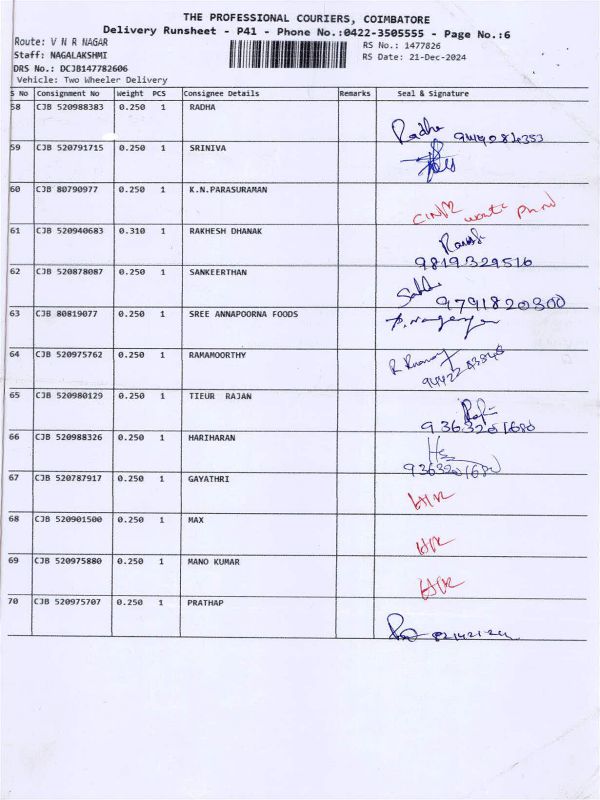 THE PROFESSIONAL COURIERS, COIMBATORE
Delivery Runsheet - P41 - Phone No.:0422-3505555 - Page No.:6
Route: V N R NAGAR RS No.: 1477826
Staff: NAGALAKSHMI RS Date: 21-Dec-2024
DRS No.: DCJB147782606
Vehicle: Two Wheeler Delivery
S No Consignment No Weight PCS Consignee Details Remarks Seal & Signature
58 CJB 520988383 0.250 1 RADHA
Radha
59 CJB 520791715 0.250 1 SRINIVA
60 CJB 80790977 0.250 1 K.N.PARASURAMAN
61 CJB 520940683 0.310 1 RAKHESH DHANAK
9819329516
62 CJB 520878087 0.250 1 SANKEERTHAN
9791820300
63 CJB 80819077 0.250 1 SREE ANNAPOORNA FOODS
64 CJB 520975762 0.250 1 RAMAMOORTHY
65 CJB 520980129 0.250 1 TIEUR RAJAN
9363201680
66 CJB 520988326 0.250 1 HARIHARAN
9363201680
67 CJB 520787917 0.250 1 GAYATHRI
68 CJB 520901500 0.250 1 MAX
69 CJB 520975880 0.250 1 MANO KUMAR
70 CJB 520975707 0.250 1 PRATHAP